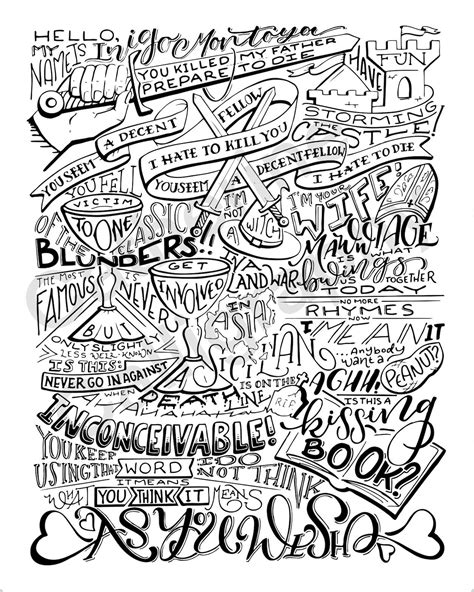 HELLO,
MY NAME IS Inigo Montoya
YOU KILLED MY FATHER
PREPARE TO DIE
HAVE FUN
STORMING
THE
CASTLE!
YOU SEEM A DECENT FELLOW
I HATE TO KILL YOU
YOU SEEM A DECENT FELLOW
I HATE TO DIE
YOU FELL
VICTIM
TO ONE
OF THE CLASSIC
BLUNDERS!!
I'M NOT
A WITCH
I'M YOUR
WIFE!
MAWWIAGE
IS WHAT
bwings US TOGETHER
TODAY
THE MOST
FAMOUS IS NEVER
GET
INVOLVED
IN A LAND WAR
IN
ASIA!
BUT
ONLY SLIGHTLY
LESS WELL-KNOWN
IS THIS:
NEVER GO IN AGAINST
A SICILIAN
WHEN
DEATH
IS ON THE
LINE
NO MORE
RHYMES
NOW
I MEAN IT
...ANYBODY
WANT A
PEANUT?
AGHH!
R.I.P.
IS THIS A
kissing
BOOK?
INCONCEIVABLE!
YOU KEEP
USING THAT WORD
I DO
NOT THINK
IT MEANS
WHAT YOU THINK IT MEANS
AS YOU WISH